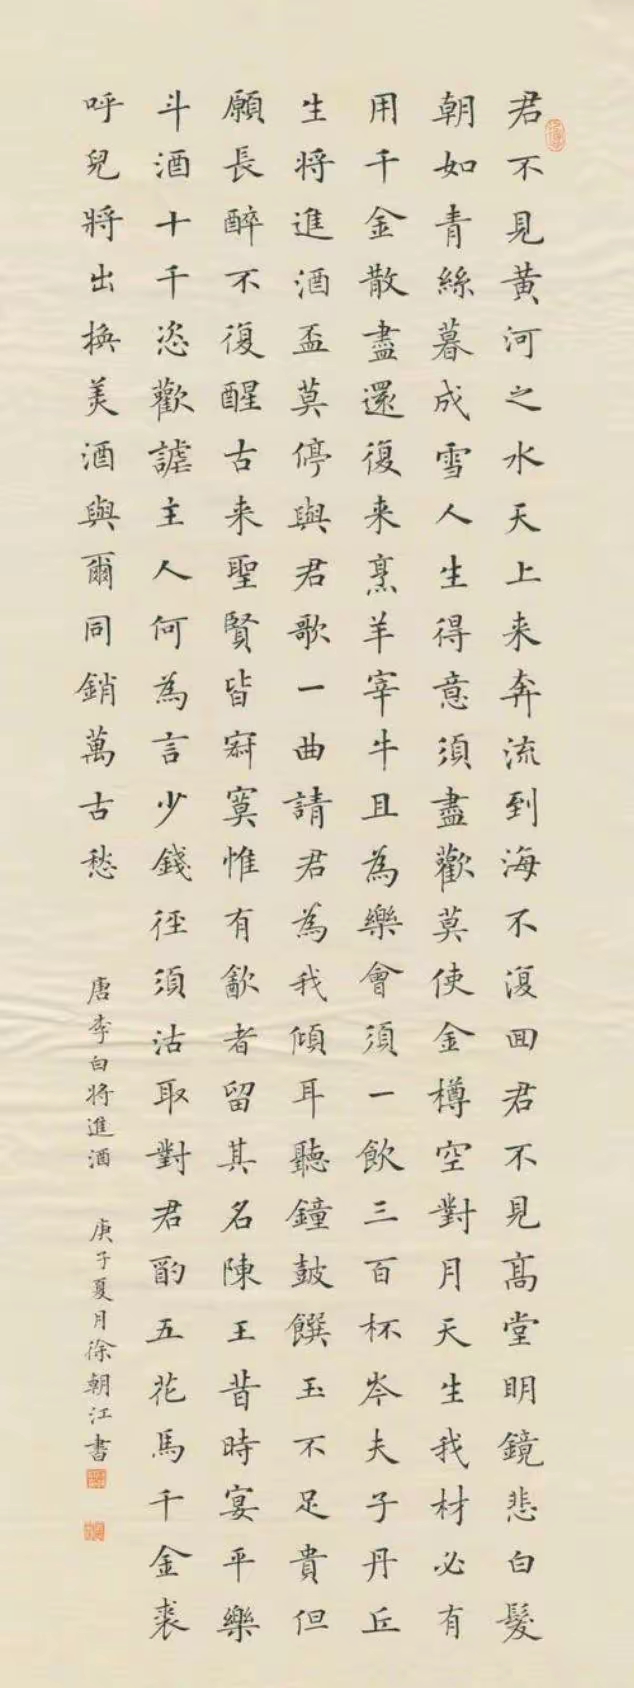 君不見黃河之水天上来奔流到海不復回君不見高堂明鏡悲白髮
朝如青絲暮成雪人生得意須盡歡莫使金樽空對月天生我材必有
用千金散盡還復来烹羊宰牛且為樂會須一飲三百杯岑夫子丹丘
生将進酒盃莫停與君歌一曲請君為我傾耳聽鐘鼓饌玉不足貴但
願長醉不復醒古来聖賢皆寂寞惟有飲者留其名陳王昔時宴平樂
斗酒十千恣歡謔主人何為言少錢徑須沽取對君酌五花馬千金裘
呼兒將出换美酒與爾同銷萬古愁
唐李白将進酒 庚子夏月徐朝江書